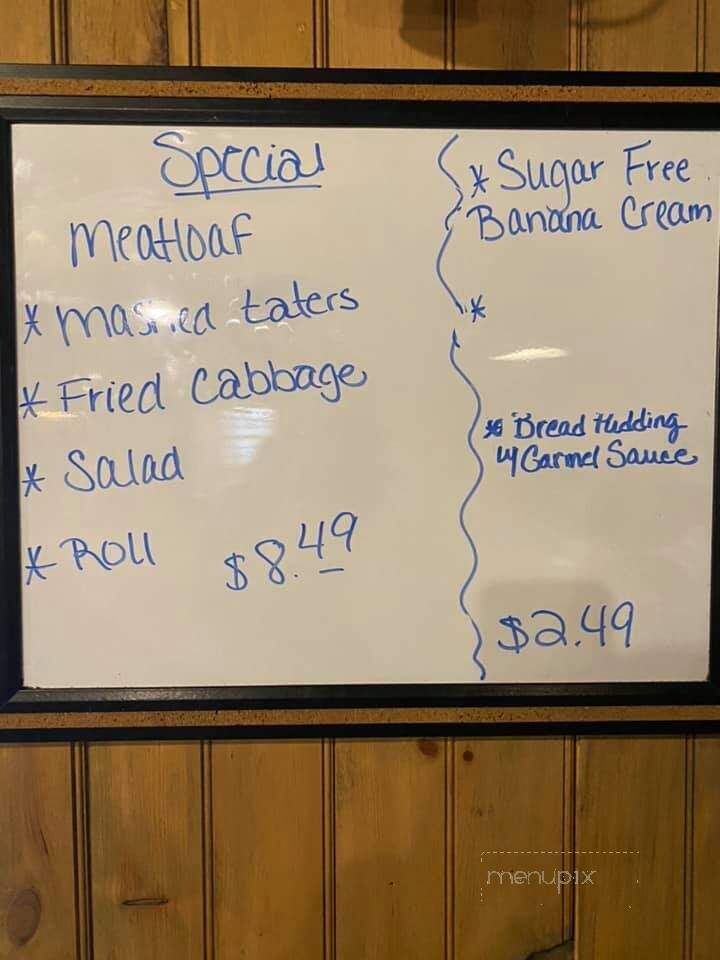 Special
Meatloaf
* mashed taters
* Fried Cabbage
* Salad
* Roll
$8.49
* Sugar Free
Banana Cream
*
* Bread Pudding
w/ Carmel Sauce
$2.49
menupix